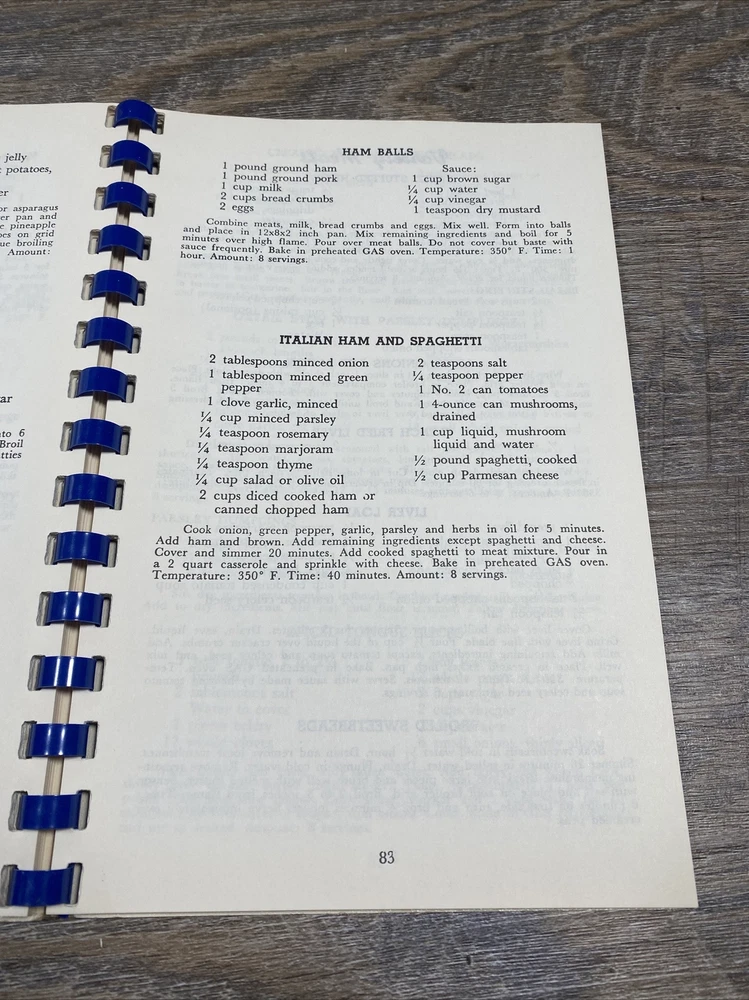 jelly
potatoes,
er
or asparagus
er pan and
e pineapple
es on grid
ue broiling
Amount:
ar
to 6
Broil
tties
HAM BALLS
1 pound ground ham
1 pound ground pork
1 cup milk
2 cups bread crumbs
2 eggs
Sauce:
1 cup brown sugar
¼ cup water
¼ cup vinegar
1 teaspoon dry mustard
Combine meats, milk, bread crumbs and eggs. Mix well. Form into balls
and place in 12x8x2 inch pan. Mix remaining ingredients and boil for 5
minutes over high flame. Pour over meat balls. Do not cover but baste with
sauce frequently. Bake in preheated GAS oven. Temperature: 350° F. Time: 1
hour. Amount: 8 servings.
ITALIAN HAM AND SPAGHETTI
2 tablespoons minced onion
1 tablespoon minced green
pepper
1 clove garlic, minced
¼ cup minced parsley
¼ teaspoon rosemary
¼ teaspoon marjoram
¼ teaspoon thyme
¼ cup salad or olive oil
2 cups diced cooked ham or
canned chopped ham
2 teaspoons salt
¼ teaspoon pepper
1 No. 2 can tomatoes
1 4-ounce can mushrooms,
drained
1 cup liquid, mushroom
liquid and water
½ pound spaghetti, cooked
½ cup Parmesan cheese
Cook onion, green pepper, garlic, parsley and herbs in oil for 5 minutes.
Add ham and brown. Add remaining ingredients except spaghetti and cheese.
Cover and simmer 20 minutes. Add cooked spaghetti to meat mixture. Pour in
a 2 quart casserole and sprinkle with cheese. Bake in preheated GAS oven.
Temperature: 350° F. Time: 40 minutes. Amount: 8 servings.
83